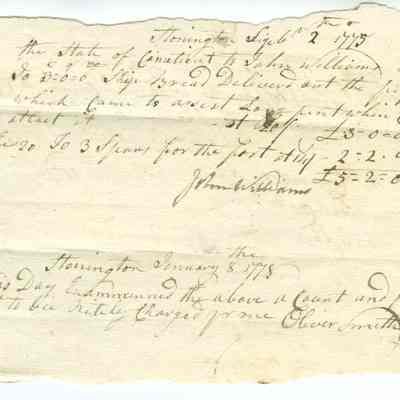 Stonington Sepbr the 2 1775
the State of Conecticut to John Williams
To 3=0=0 Ship Bread Delivered out the
which Came to assist Long pint when
attact it - at £3=0=0
20 To 3 Spears for the fort at - 2=2=
£5=2=0
John Williams
Stonington January the 8 1778
Day Examened the above a Count and
to bee Ritely Charged pr me Oliver Smith